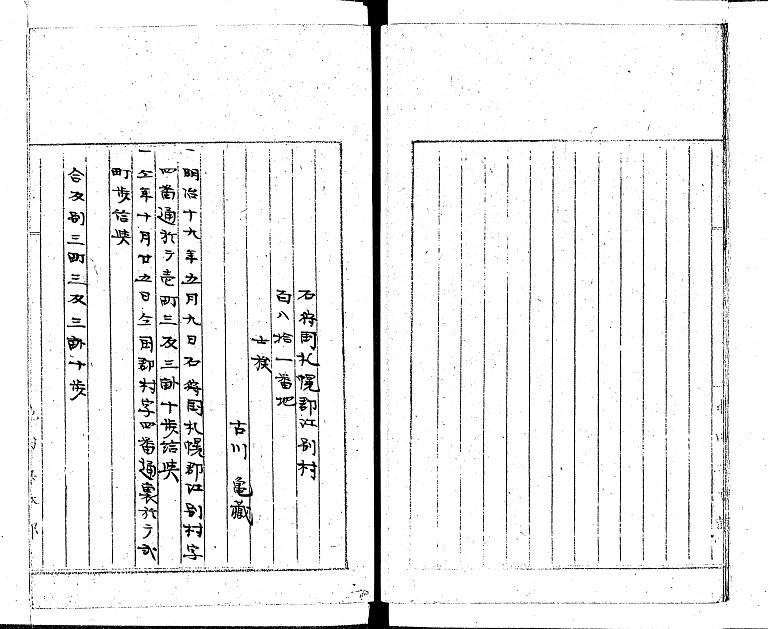 石狩国札幌郡江別村
百八拾一番地
士族
古川亀蔵
一明治十九年五月九日石狩国札幌郡江別村字
四番通於テ壱町三反三畝十歩給与
一仝年十月廿五日仝国郡村字四番通裏於テ弐
町歩給与
合反別三町三反三畝十歩